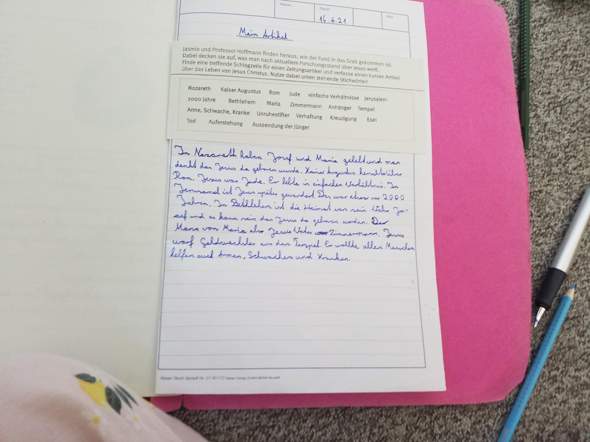 16.6.21
Mein Artikel
Jasmin und Professor Hoffmann finden heraus, wie der Fund in das Grab gekommen ist.
Dabei decken sie auf, was man nach aktuellem Forschungsstand über Jesus weiß.
Finde eine treffende Schlagzeile für einen Zeitungsartikel und verfasse einen kurzen Artikel
über das Leben von Jesus Christus. Nutze dabei unten stehende Stichwörter!
Nazareth Kaiser Augustus Rom Jude einfache Verhältnisse Jerusalem
2000 Jahre Bethlehem Maria Zimmermann Anhänger Tempel
Arme, Schwache, Kranke Unruhestifter Verhaftung Kreuzigung Esel
Tod Auferstehung Aussendung der Jünger
In Nazareth haben Josef und Maria gelebt und man
denkt das Jesus da geboren wurde. Kaiser Augustus
Rom. Jesus war Jude. Er lebte in einfachen In
ist Jesus später Das war etwa vor 2000
Jahren. In Bethlehem ist die Heimat von sein Vater Jo-
sef und es kann sein das Jesus da geboren worden. Der
Mann von Maria also Jesus Vater Zimmermann. Jesus
warf Geldwechsler aus den Tempel. Er wollte allen Menschen
helfen auch Armen, Schwachen und Kranken.